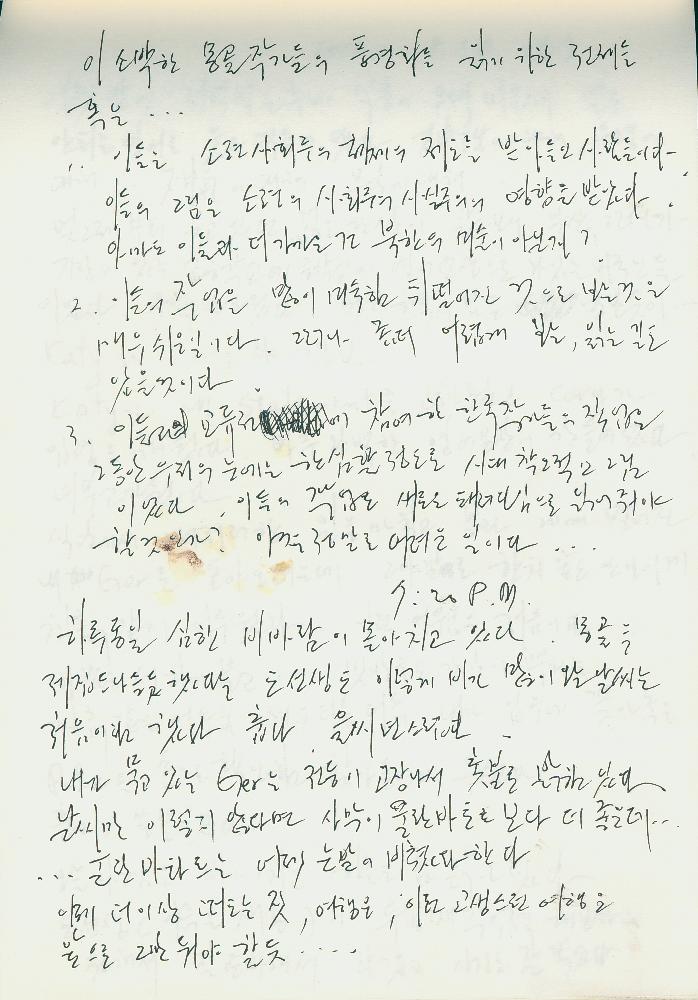 이 소박한 몽골작가들의 풍경화를 읽기 위한 전제들
혹은 ...
1. 이들은 소련사회주의 체제의 제도를 받아들인 사람들이다-
이들의 그림은 소련의 사회주의 사실주의의 영향을 받았다.
아마도 이들과 더 가까운 건 북한의 미술이 아닐런지?
2. 이들의 작업을 많이 미숙함 뒤떨어진 것으로 보는 것은
매우 쉬운일이다. 그러나 좀더 어렵게 보는, 읽는 길도
있을것이다.
3. 이들과 교류전에 참여한 한국작가들의 작업은
그동안 우리의 눈에는 한심할 정도로 시대 착오적인 그림
이었다. 이들의 작업도 새로운 태도로 읽어줘야
할것인가? 아주 정말로 어려운 일이다...
7:20 P.M.
하루종일 심한 비바람이 몰아치고 있다. 몽골을
제집드나들듯했다는 도선생도 이렇게 비가 많이오는 날씨는
처음이라 했다 춥다 을씨년스럽다.
내가 묵고 있는 Ger는 전등이 고장나서 촛불로 밝히고 있다
날씨만 이렇지 않다면 사막이 울란바토르 보다 더 좋은데...
... 울란바타르는 어제 눈발이 비쳤다한다
이제 더이상 떠도는 짓, 여행은, 이런 고생스런 여행은
끝으로 그만 둬야 할듯 ....